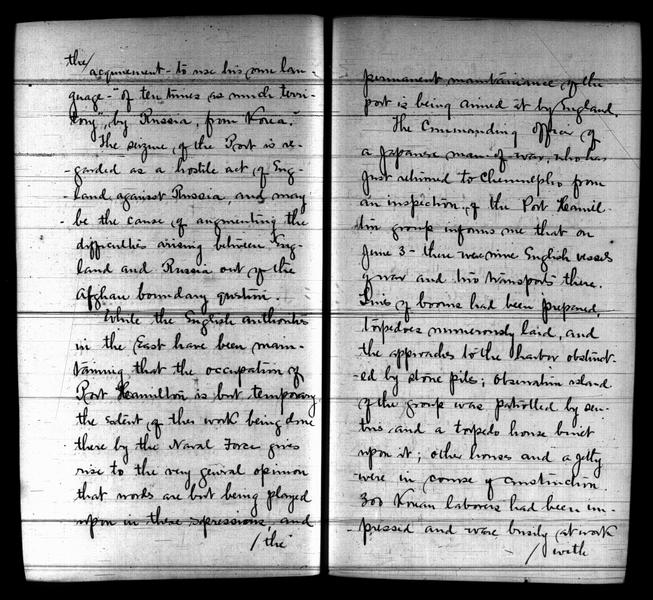 the/
acquirement - to use his own lan-
guage - "of ten times as much terri-
tory", by Russia, from Korea."
The seizure of the Port is re-
garded as a hostile act of Eng-
land against Russia, and may
be the cause of augmenting the
difficulties arising between Eng-
land and Russia out of the
Afghan boundary question.
While the English authorities
in the East have been main-
taining that the occupation of
Port Hamilton is but temporary
the extent of the work being done
there by the Naval Force gives
rise to the very general opinion
that words are but being played
upon in these expressions, and
/the
permanent maintainance of the
port is being aimed at by England.
The Commanding Officer of
a Japanese man-of-war, who has
just returned to Chemulpho from
an inspection of the Port Hamil-
ton group informs me that on
June 3 - there were nine English vessels
of war and two transports there.
Lines of booms had been prepared,
torpedoes numerously laid, and
the approaches to the harbor obstruct-
ed by stone piles; observation island
of the group was patrolled by sen-
tries and a torpedo house built
upon it; other houses and a jetty
were in course of construction.
300 Korean laborers had been im-
pressed and were busily at work
/with